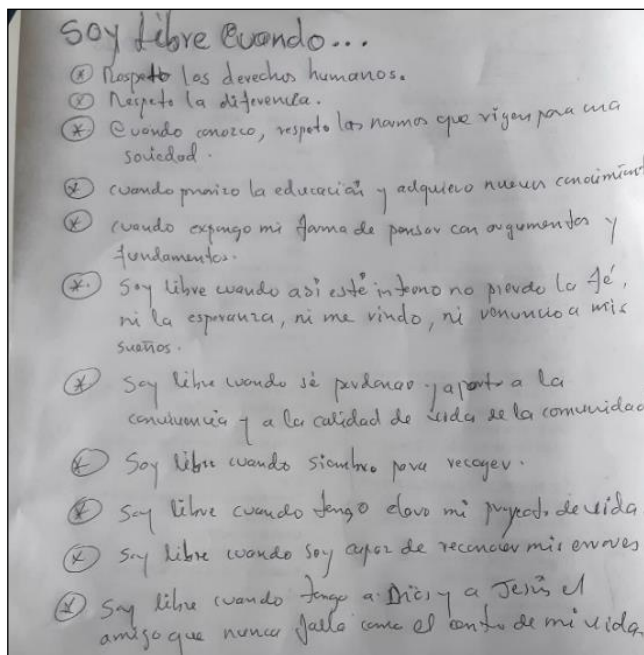 Soy libre cuando...
* Respeto los derechos humanos.
* Respeto la diferencia.
* Cuando conozco, respeto las normas que rigen para una
sociedad.
* cuando priorizo la educación y adquiero nuevos conocimient
* cuando expongo mi forma de pensar con argumentos y
fundamentos.
* Soy libre cuando asi esté interno no pierdo la fé,
ni la esperanza, ni me rindo, ni renuncio a mis
sueños.
* Soy libre cuando sé perdonar y aporto a la
convivencia y a la calidad de vida de la comunidad
* Soy libre cuando siembro para recoger.
* Soy libre cuando tengo claro mi proyecto de vida
* Soy libre cuando soy capaz de reconocer mis errores
* Soy libre cuando tengo a Dios y a Jesús el
amigo que nunca falla como el centro de mi vida.